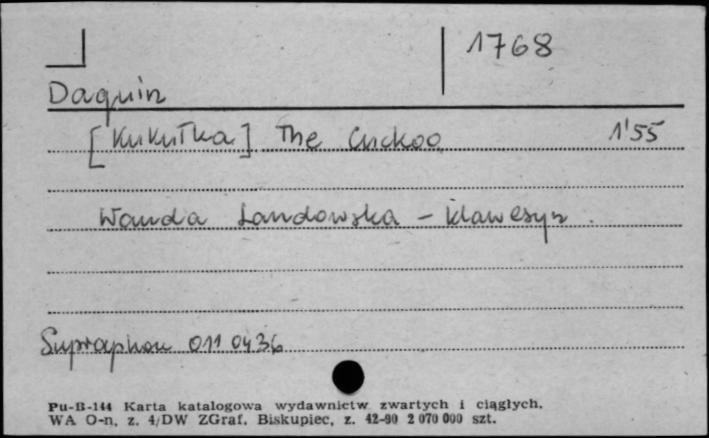 1768
Daquin
[Kukułka] The Cuckoo 1'55
Wanda Landowska - klawesyn
Supraphon 011 0436
Pu-B-144 Karta katalogowa wydawnictw zwartych i ciągłych.
WA O-n, z. 4/DW ZGraf. Biskupiec, z. 42-90 2 070 000 szt.